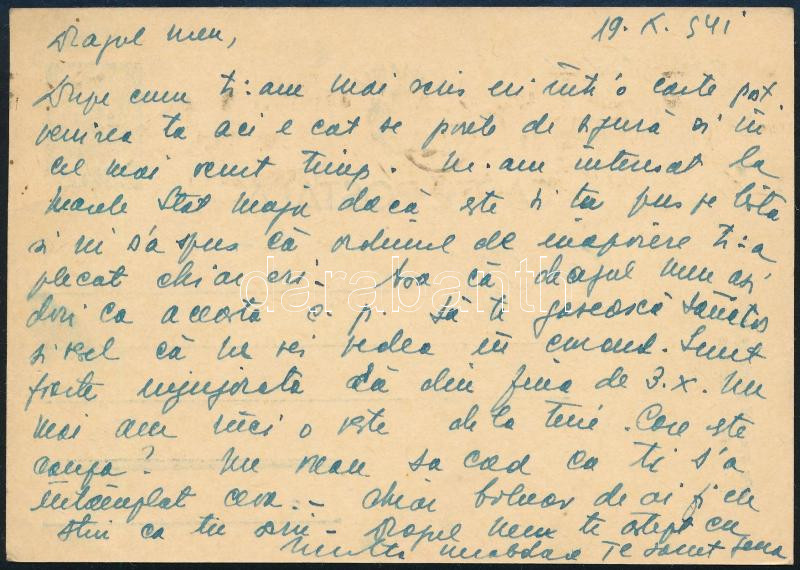 Dragul meu, 19. X. 941
Dupe cum ti-am mai scris eri într'o carte pos
venirea ta aci e cat se poate de sigură si în
cel mai scurt timp. M-am interesat la
Marele Stat Major dacă este si tu pus pe listă
si mi s'a spus că ordinul de inapoiere ti-a
plecat chiar eri. Asa că dragul meu asi
dori ca aceasta c. p. să te gasească sănătos
si vesel că ne vei vedea în curand. Sunt
foarte ingrijorata că din ziua de 3.X. nu
mai am nici o veste de la tine. Care este
cauza? Nu vreau sa cred ca ti s'a
întâmplat ceva.- chiar bolnav de ai fi
stiu ca tu scrii - Dragul meu te astept cu
multa nerabdare Te sarut
darabanth